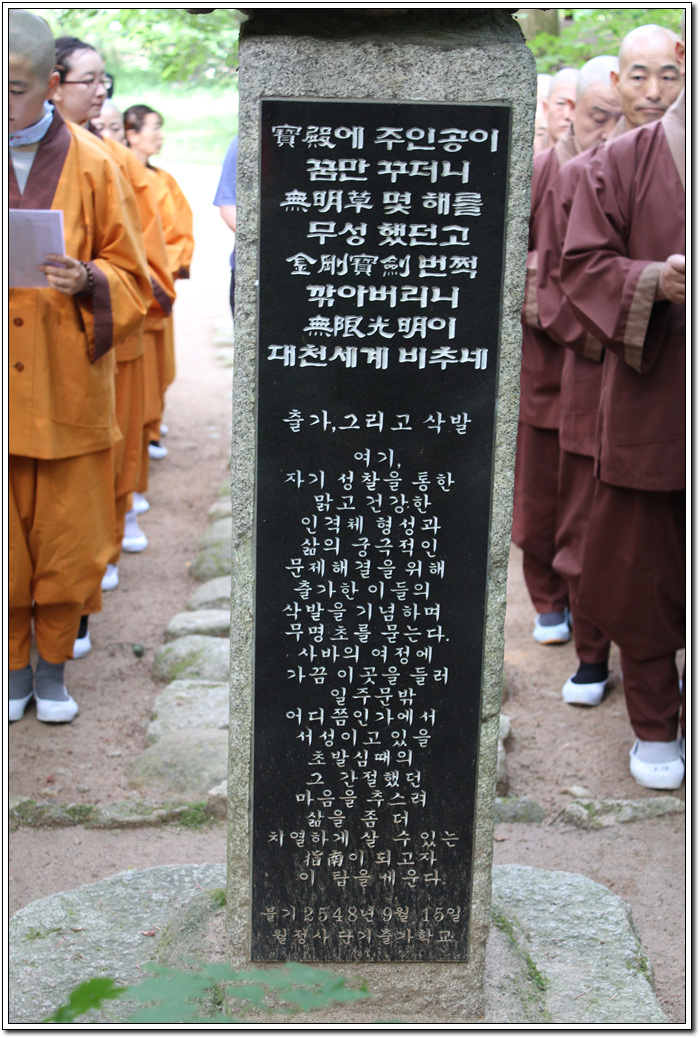 寶殿에 주인공이
꿈만 꾸더니
無明草 몇 해를
무성 했던고
金剛寶劍 번쩍
깎아버리니
無限光明이
대천세계 비추네
출가,그리고 삭발
여기,
자기 성찰을 통한
맑고 건강한
인격체 형성과
삶의 궁극적인
문제해결을 위해
출가한 이들의
삭발을 기념하며
무명초를 묻는다.
사바의 여정에
가끔 이곳을 들러
일주문밖
어디쯤인가에서
서성이고 있을
초발심때의
그 간절했던
마음을 추스려
삶을 좀 더
치열하게 살 수 있는
指南이 되고자
이 탑을 세운다.
불기 2548년 9월 15일
월정사 단기출가학교